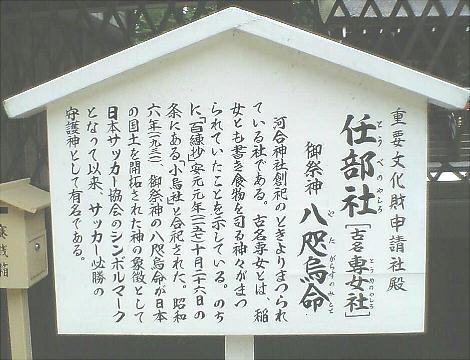 重要文化財申請社殿
任部社［古名專女社］
とうべのやしろ
とうめのやしろ
御祭神 八咫烏命
やたがらすのみこと
河合神社創祀のときよりまつられ
ている社である。古名専女とは、稲
女とも書き食物を司る神々がまつ
られていたことを示している。のち
に、「百練抄」安元元年(一一七五)十月二十六日の
条にある、「小烏社」と合祀された。昭和
六年(一九三一)、御祭神の八咫烏命が日本
の国土を開拓された神の象徴として
日本サッカー協会のシンボルマーク
となって以来、サッカー必勝の
守護神として有名である。
賽銭箱